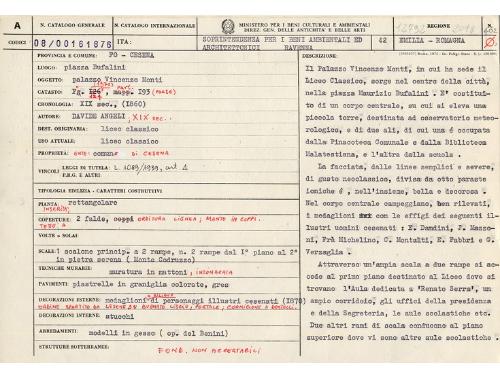 A
N. CATALOGO GENERALE
N. CATALOGO INTERNAZIONALE
MINISTERO PER I BENI CULTURALI E AMBIENTALI
DIREZ. GEN. DELLE ANTICHITÀ E BELLE ARTI
REGIONE
N.
CODICI
08/00161876
ITA:
SOPRINTENDENZA PER I BENI AMBIENTALI ED
ARCHITETTONICI RAVENNA
42
EMILIA - ROMAGNA
PROVINCIA E COMUNE: FO - CESENA
LUOGO: piazza Bufalini
OGGETTO: palazzo Vincenzo Monti
CATASTO: Fg. 126, mapp. 193
CRONOLOGIA: XIX sec., (1860)
AUTORE: DAVIDE ANGELI, XIX sec.
DEST. ORIGINARIA: liceo classico
USO ATTUALE: liceo classico
PROPRIETÀ: ENTE: comune DI CESENA
VINCOLI
LEGGI DI TUTELA: L. 1089/1939, art. 4
P.R.G. E ALTRI:
TIPOLOGIA EDILIZIA - CARATTERI COSTRUTTIVI
PIANTA: rettangolare
COPERTURE: 2 falde, coppi ORDITURA LIGNEA; MANTO IN COPPI.
VOLTE o SOLAI:
SCALE: 1 scalone princip. a 2 rampe, n. 2 rampe dal I° piano al 2°
in pietra serena (Monte Codruzzo)
TECNICHE MURARIE:
muratura in mattoni, INTONACATA
PAVIMENTI: piastrelle in graniglia colorate, gres
DECORAZIONI ESTERNE: medaglioni di personaggi illustri cesenati (1870)
DECORAZIONI INTERNE: stucchi
ARREDAMENTI:
modelli in gesso (op. del Bonini)
STRUTTURE SOTTERRANEE:
FOND. NON ACCERTABILI
DESCRIZIONE:
Il Palazzo Vincenzo Monti, in cui ha sede il
Liceo Classico, sorge nel centro della città,
nella piazza Maurizio Bufalini. E' costituito
di un corpo centrale, su cui si eleva una
piccola torre, destinata ad osservatorio meteorologico,
e di due ali, di cui una è occupata
dalla Pinacoteca Comunale e dalla Biblioteca
Malatestiana, e l'altra dalla scuola.
La facciata, dalle linee semplici e severe,
di gusto neoclassico, divisa da otto paraste
ioniche è, nell'insieme, bella e decorosa.
Nel corpo centrale campeggiano, ben rilevati,
i medaglioni con le effigi dei seguenti illustri
uomini cesenati: E. Dandini, J. Mazzoni,
Frà Michelino, C. Montalti, E. Fabbri e G.
Versaglia.
Attraverso un'ampia scala a due rampe si accede
al primo piano destinato al Liceo dove si
trovano l'Aula dedicata a "Renato Serra", un
ampio corridoio, gli uffici della presidenza
e della Segreteria, le aule scolastiche.
Due altri rami di scala conducono al piano
superiore dove vi sono altre aule scolastiche.